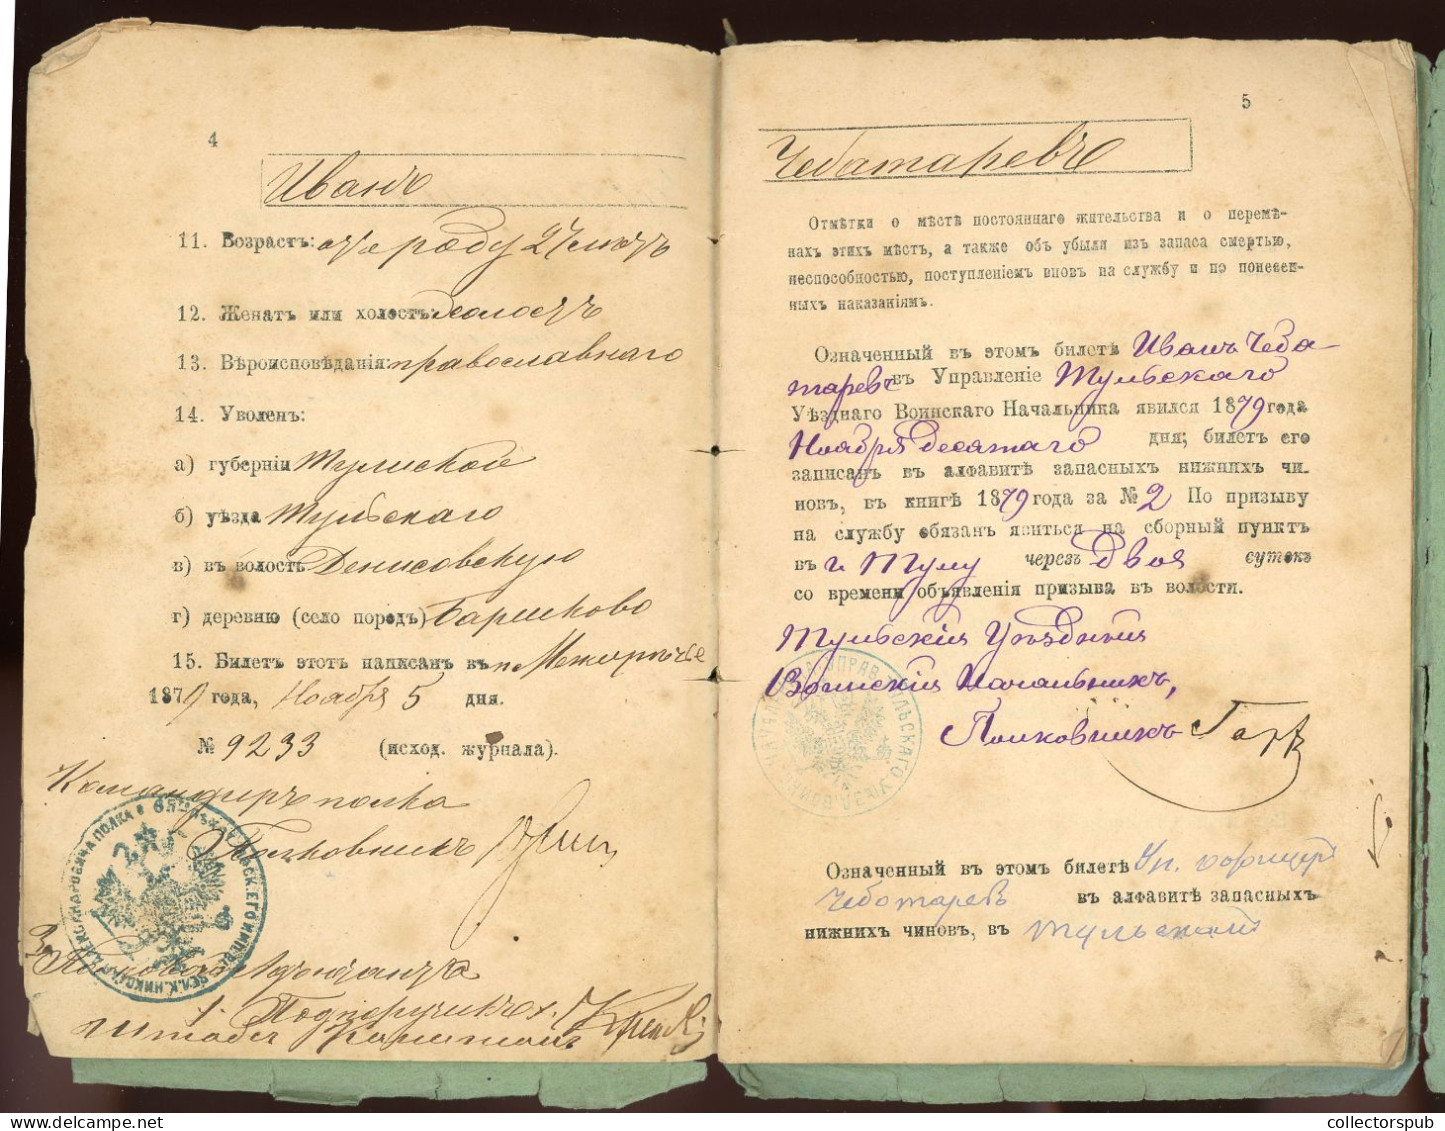 4
Иванъ
11. Возрастъ: отъ роду 27 лѣтъ
12. Женатъ или холостъ: холостъ
13. Вѣроисповѣданія: православнаго
14. Уволенъ:
а) губерніи Тульской
б) уѣзда Тульскаго
в) въ волость Денисовскую
г) деревню (село породъ)
15. Билетъ этотъ написанъ въ
1879 года, Ноября 5 дня.
№ 9233 (исход. журнала).
Командиръ полка
Полковникъ
Полковаго Адъютанта
Подпоручикъ
Штабсъ Капитанъ
5
Чебатаревъ
Отмѣтки о мѣстѣ постояннаго жительства и о перемѣ-
нахъ этихъ мѣстъ, а также объ убыли изъ запаса смертью,
неспособностью, поступленіемъ вновь на службу и по понесен-
ныхъ наказаніямъ.
Означенный въ этомъ билетѣ Иванъ Чеба-
таревъ въ Управленіе Тульскаго
Уѣзднаго Воинскаго Начальника явился 1879 года
Ноября десятаго дня; билетъ его
записанъ въ алфавитѣ запасныхъ нижнихъ чи-
новъ, въ книгѣ 1879 года за № 2 По призыву
на службу обязанъ явиться на сборный пунктъ
въ г. Тулу черезъ двое сутокъ
со времени объявленія призыва въ волости.
Тульскій Уѣздный
Воинскій Начальникъ,
Полковникъ
Означенный въ этомъ билетѣ Ун. офицеръ
Чеботаревъ въ алфавитѣ запасныхъ
нижнихъ чиновъ, въ Тульскій
collectorspub